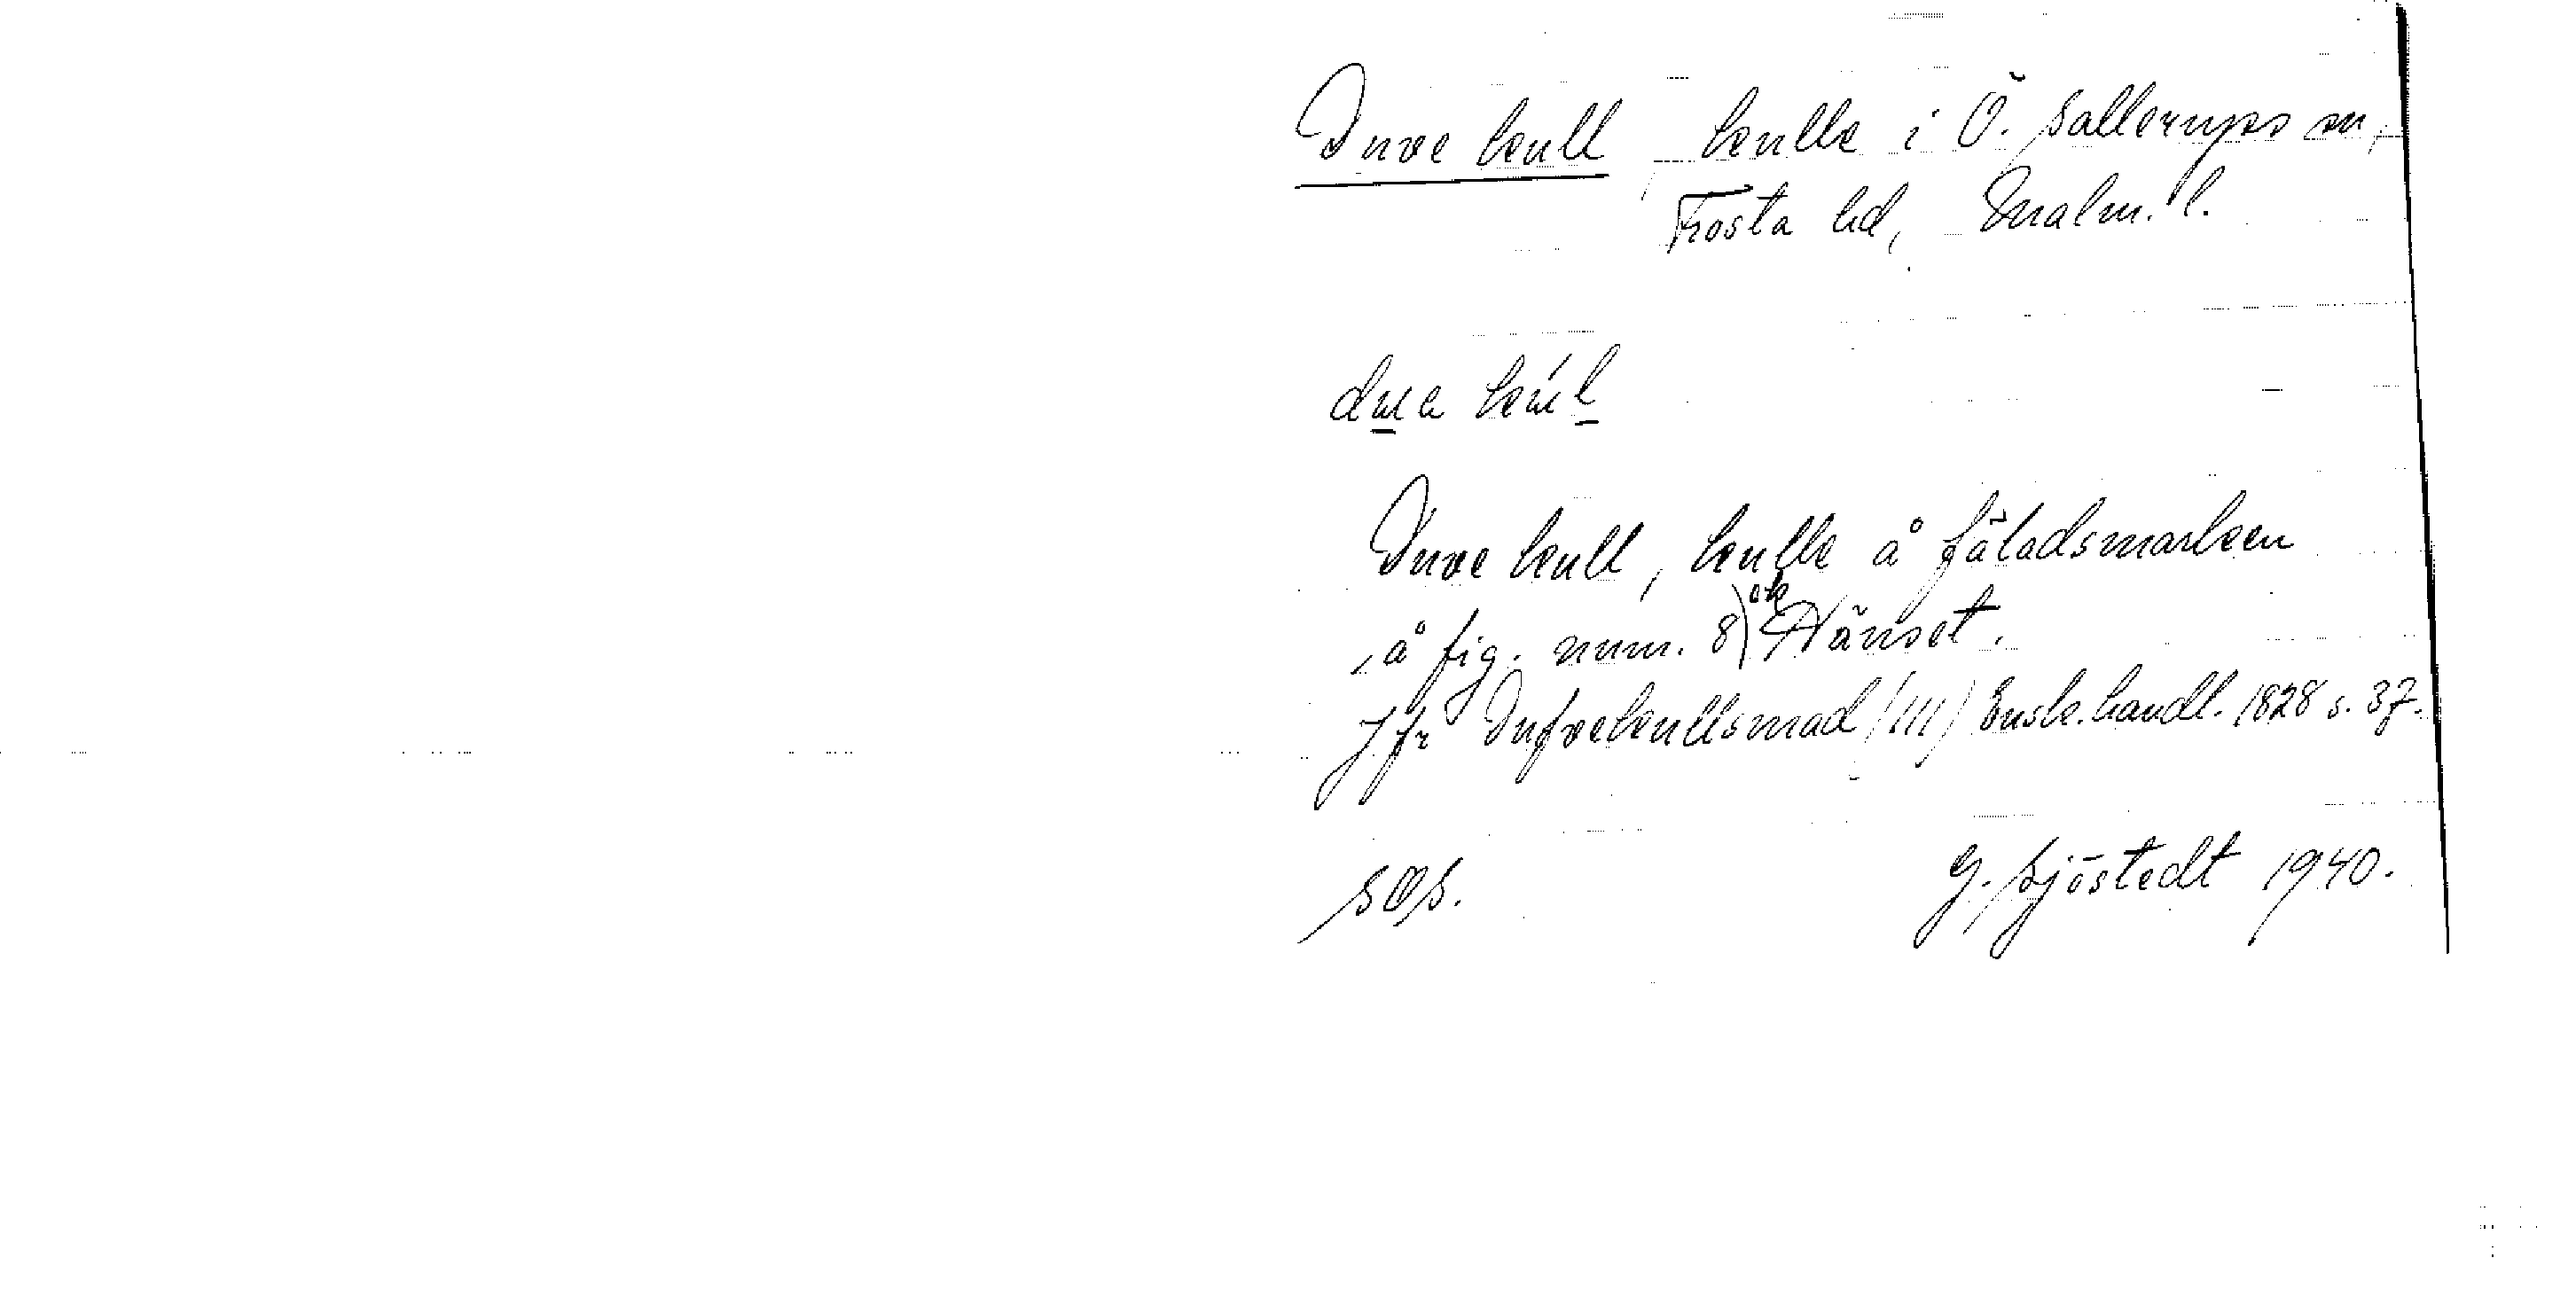 Duve kull kulle i Ö. Sallerups sn,
Frosta hd, Malm. l.
dua kúl
Duve kull, kulle å fäladsmarken
å fig. num. 8) ök Hänset.
Jfr Dufvekullsmad (111) Ensk. handl. 1828 s. 37.
SOS.
G. Sjöstedt 1940.